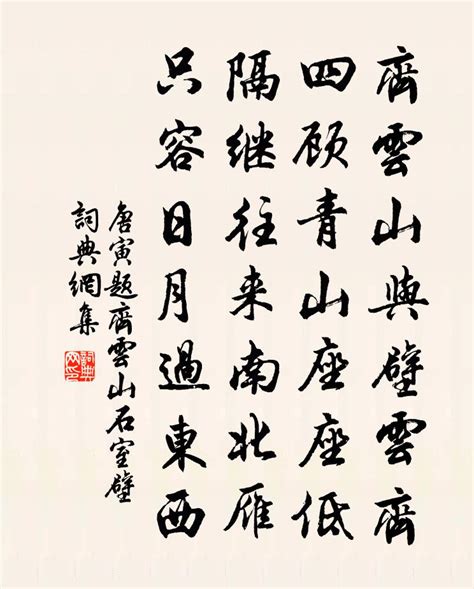 齊雲山與壁雲齊
四顾青山座座低
隔继往来南北雁
只容日月過東西
唐寅题齊雲山石室壁
詞典網集